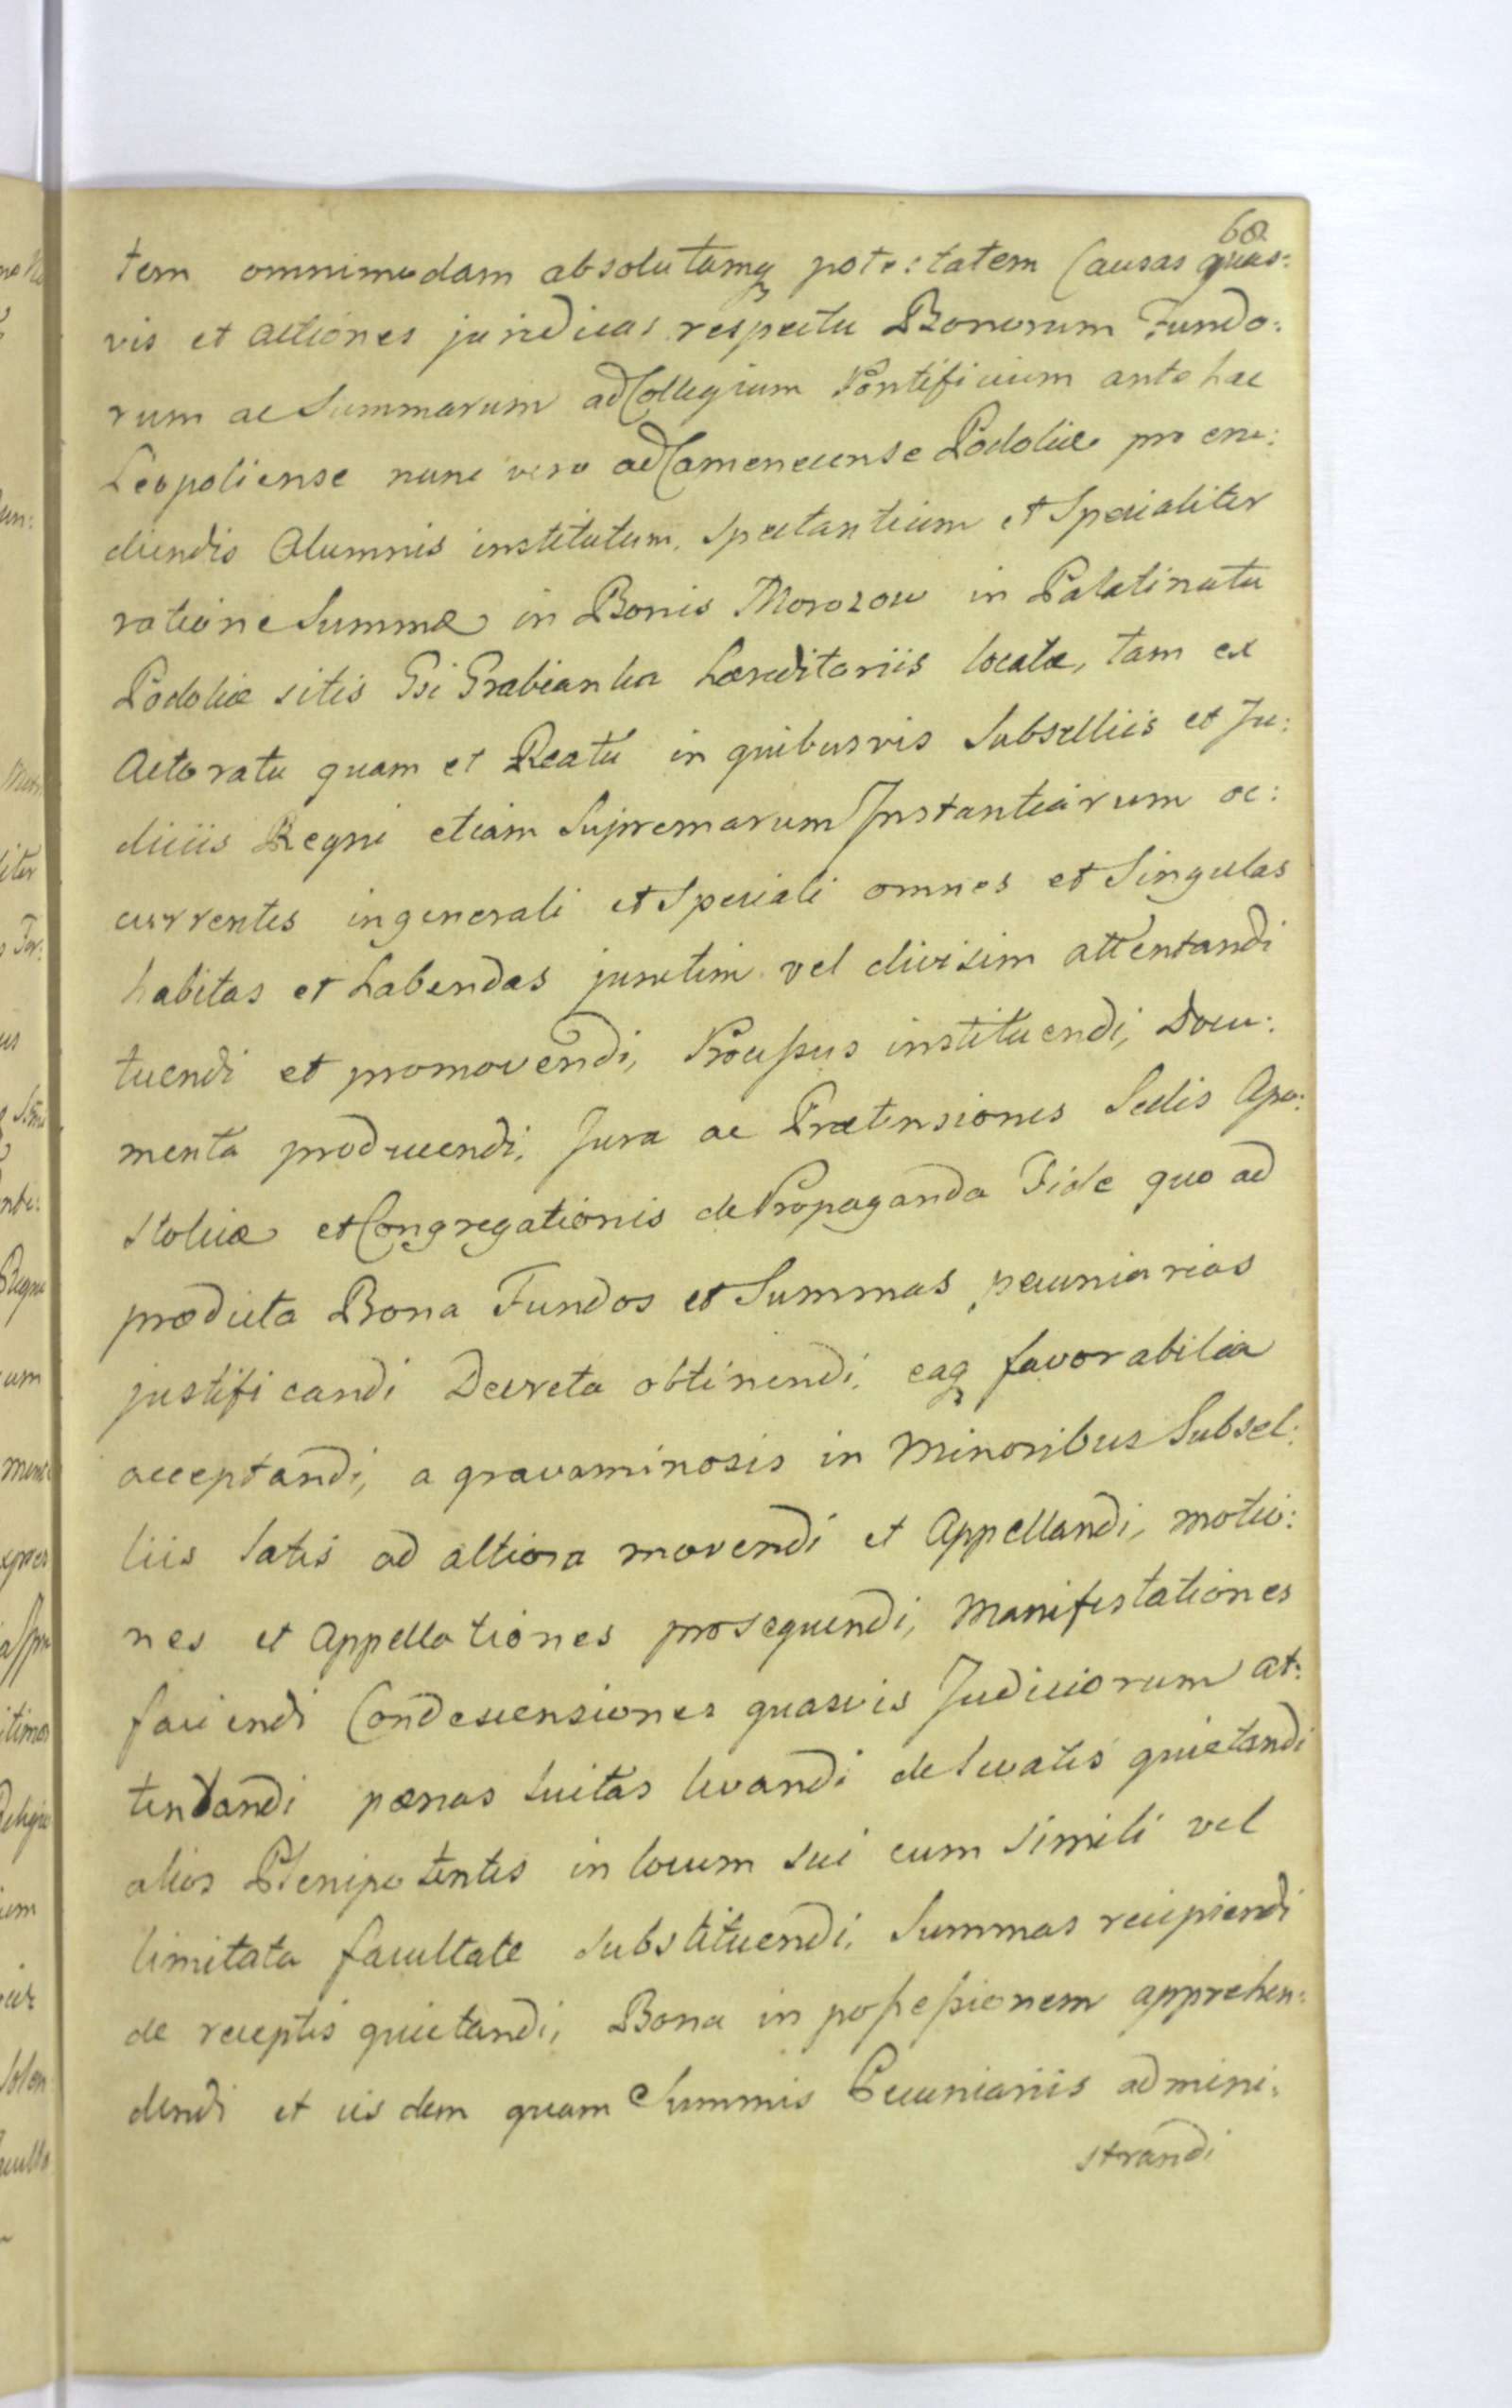 68
tem omnimodam absolutamq potestatem Causas quas:
vis et actiones juridicas respectu Bonorum Fundo:
rum ac Summarum ad Collegium Pontificium antehac
Leopoliense nunc vero ad Camenecense Podoliæ pro eru:
diendis Alumnis institutum, spectantium et Specialiter
ratione Summæ in Bonis Morozow in Palatinatu
Podoliæ sitis Gsi Grabianka hæreditariis locatæ, tam ex
Actoratu quam et Reatu in quibusvis Subselliis et Ju:
diciis Regni etiam Supremarum Instantiarum oc:
currentes in generali et Speciali omnes et Singulas
habitas et habendas junctim vel divisim attentandi
tuendi et promovendi, Processus instituendi, Docu:
menta producendi, Jura ac Prætensiones Sedis Apo:
stolicæ et Congregationis de Propaganda Fide quo ad
prædicta Bona Fundos et Summas pecuniarias
justificandi Decreta obtinendi, eaq favorabilia
acceptandi, a gravaminosis in Minoribus Subsel:
liis latis ad altiora movendi et Appellandi, motio:
nes et Appellationes prosequendi, Manifestationes
faciendi Condescensiones quasvis Judiciorum at:
tentandi pænas luitas levandi de levatis quietandi
alios Plenipotentes in locum sui cum simili vel
limitata facultate substituendi, Summas recipiendi
de receptis quietandi, Bona in possessionem apprehen:
dendi et iis dem quam Summis Pecuniariis admini:
strandi